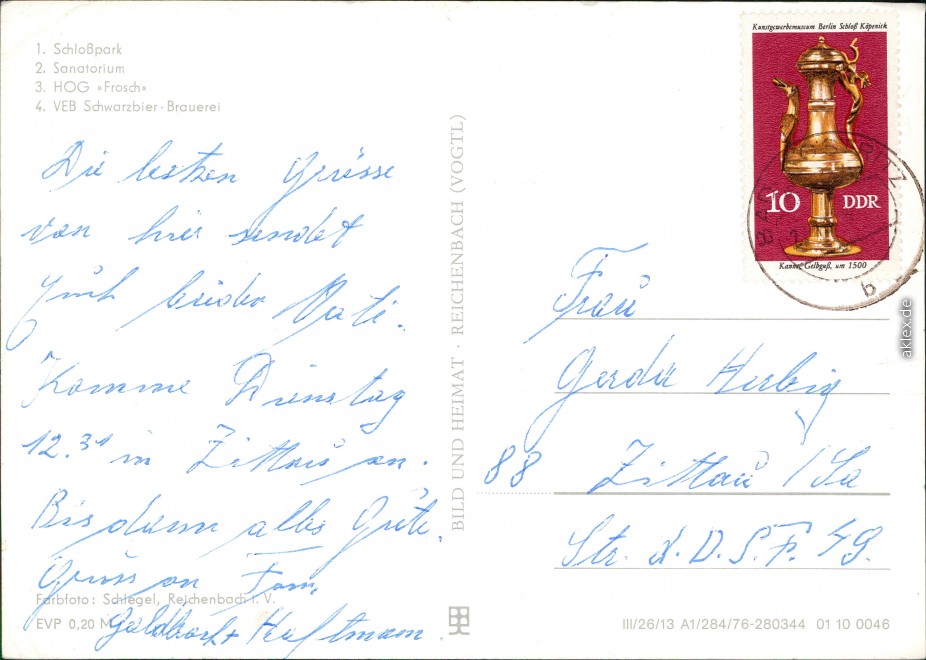 1. Schloßpark
2. Sanatorium
3. HOG »Frosch«
4. VEB Schwarzbier-Brauerei
Die letzten Grüsse
von hier sendet
Euch beiden Vati.
Komme Dienstag
12.31 in Zittau an.
Bis dann alles Gute.
Gruss an Fam.
Goldbach + Hauftmann.
Farbfoto: Schlegel, Reichenbach i. V.
EVP 0,20 M
BILD UND HEIMAT · REICHENBACH (VOGTL)
Kunstgewerbemuseum Berlin Schloß Köpenick
10 DDR
Kanne, Gelbguß, um 1500
b
Frau
Gerda Herbig
88 Zittau / Sa
Str. d. D. S. F. 49.
III/26/13 A1/284/76-280344 01 10 0046
aklex.de